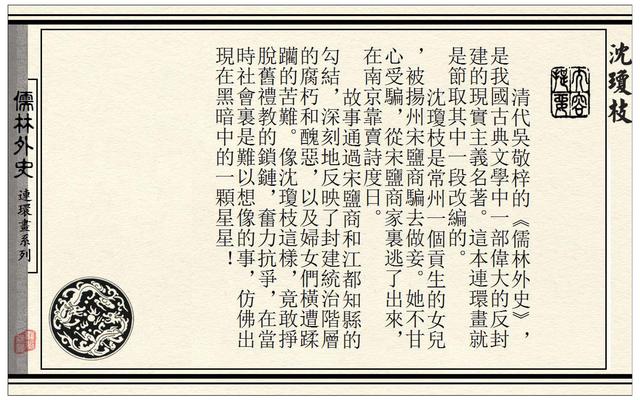 沈瓊枝
內容提要
清代吳敬梓的《儒林外史》，
是我國古典文學中一部偉大的反封
建的現實主義名著。這本連環畫就
是節取其中一段改編的。
沈瓊枝是常州一個貢生的女兒
，被揚州宋鹽商騙去做妾。她不甘
心受騙，從宋鹽商家裏逃了出來，
在南京靠賣詩度日。
故事通過宋鹽商和江都知縣的
勾結，深刻地反映了封建統治階層
的腐朽和醜惡，以及婦女們橫遭蹂
躪的苦難。像沈瓊枝這樣，竟敢掙
脫舊禮教的鎖鏈，奮力抗爭，在當
時社會裏是難以想像的事，仿佛出
現在黑暗中的一顆星星！
儒林外史
連環畫系列